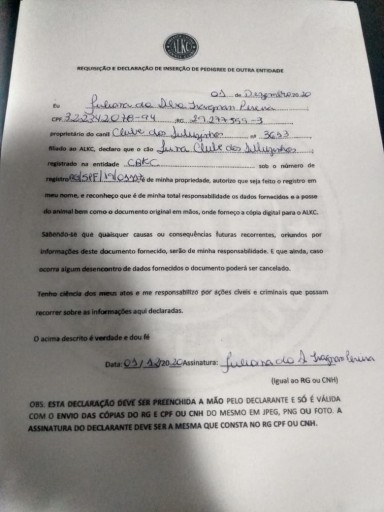 ALKC
REQUISIÇÃO E DECLARAÇÃO DE INSERÇÃO DE PEDIGREE DE OUTRA ENTIDADE
01 de Dezembro 20
Eu Juliana da Silva Pereira
CPF RG
proprietário do canil Clube dos nº 3653
filiado ao ALKC, declara que o cão Clube dos
registrado na entidade CBKC sob o número de
registro de minha propriedade, autorizo que seja feito o registro em
meu nome, e reconheço que é de minha total responsabilidade os dados fornecidos e a posse
do animal bem como o documento original em mãos, onde forneço a cópia digital para o ALKC.
Sabendo-se que quaisquer causas ou consequências futuras recorrentes, oriundos por
informações deste documento fornecido, serão de minha responsabilidade. E que ainda, caso
ocorra algum desencontro de dados fornecidos o documento poderá ser cancelado.
Tenho ciência dos meus atos e me responsabilizo por ações cíveis e criminais que possam
recorrer sobre as informações aqui declaradas.
O acima descrito é verdade e dou fé
Data: 01/12/2020 Assinatura: Juliana da S Pereira
(Igual ao RG ou CNH)
OBS: ESTA DECLARAÇÃO DEVE SER PREENCHIDA A MÃO PELO DECLARANTE E SÓ É VÁLIDA
COM O ENVIO DAS CÓPIAS DO RG E CPF OU CNH DO MESMO EM JPEG, PNG OU FOTO. A
ASSINATURA DO DECLARANTE DEVE SER A MESMA QUE CONSTA NO RG CPF OU CNH.